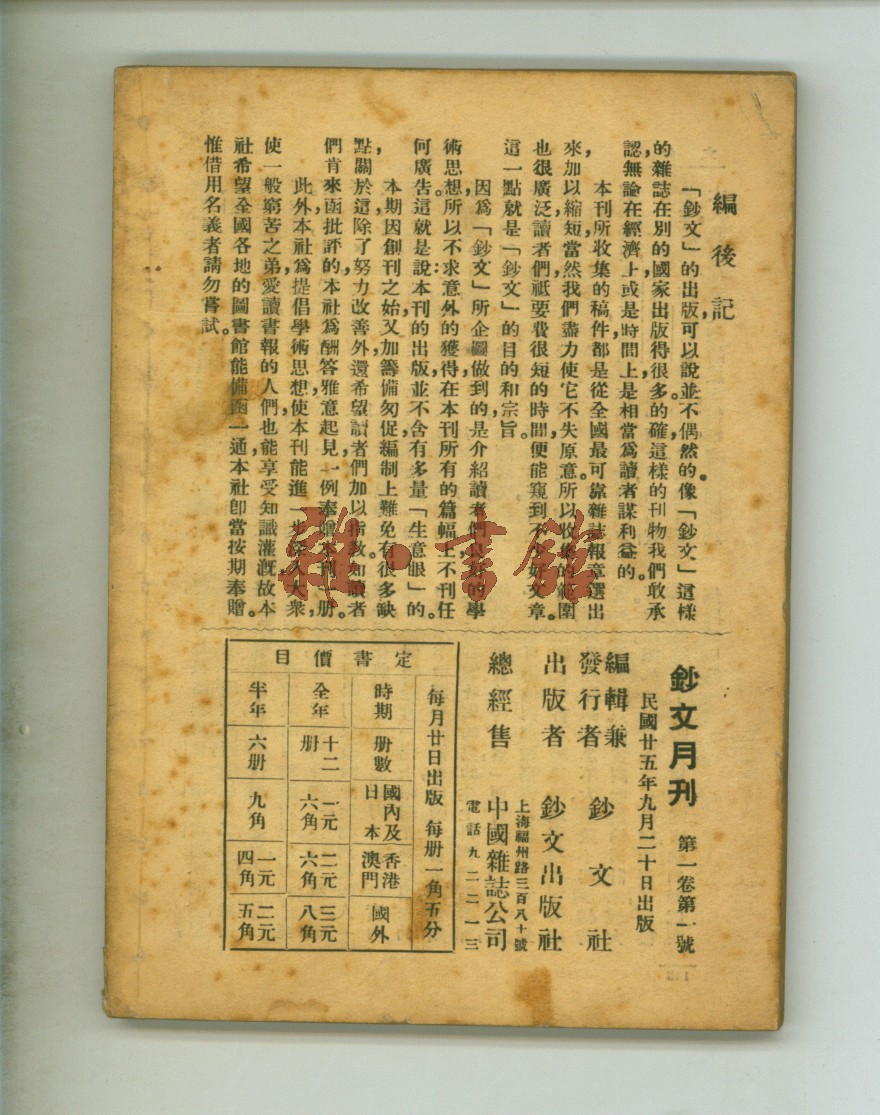 編後記
「鈔文」的出版,可以說並不偶然的。像「鈔文」這樣
的雜誌,在別的國家,出版得很多。的確,這樣的刊物,我們敢承
認無論在經濟上或是時間上,是相當爲讀者謀利益的。
本刊所收集的稿件,都是從全國最可靠雜誌報章選出
來,加以縮短,當然我們盡力使它不失原意。所以收集的範圍
也很廣泛,讀者們祇要費很短的時間,便能窺到不少好文章。
這一點就是「鈔文」的目的和宗旨。
因爲「鈔文」所企圖做到的,是介紹讀者們良好的學
術思想,所以不求意外的獲得,在本刊所有的篇幅上,不刊任
何廣告。這就是說:本刊的出版,並不含有多量「生意眼」的。
本期因創刊之始,又加籌備匆促,編制上難免有很多缺
點,關於這,除了努力改善外,還希望讀者們加以指教。如讀者
們肯來函批評的,本社爲酬答雅意起見,一例奉贈本刊一册。
此外,本社爲提倡學術思想,使本刊能進一步深入大衆,
使一般窮苦之弟,愛讀書報的人們,也能享受知識灌溉,故本
社希望全國各地的圖書館,能備函一通,本社卽當按期奉贈。
惟借用名義者,請勿嘗試。
鈔文月刊 第一卷第一號
民國廿五年九月二十日出版
編輯兼發行者 鈔文社
出版者 鈔文出版社
上海福州路三百八十號
總經售 中國雜誌公司
電話九二二一三
每月廿日出版 每册一角五分
定書價目
時期 册數 國內及日本 香港澳門 國外
全年 十二册 一元六角 二元六角 三元八角
半年 六册 九角 一元四角 二元五角
雜·書館